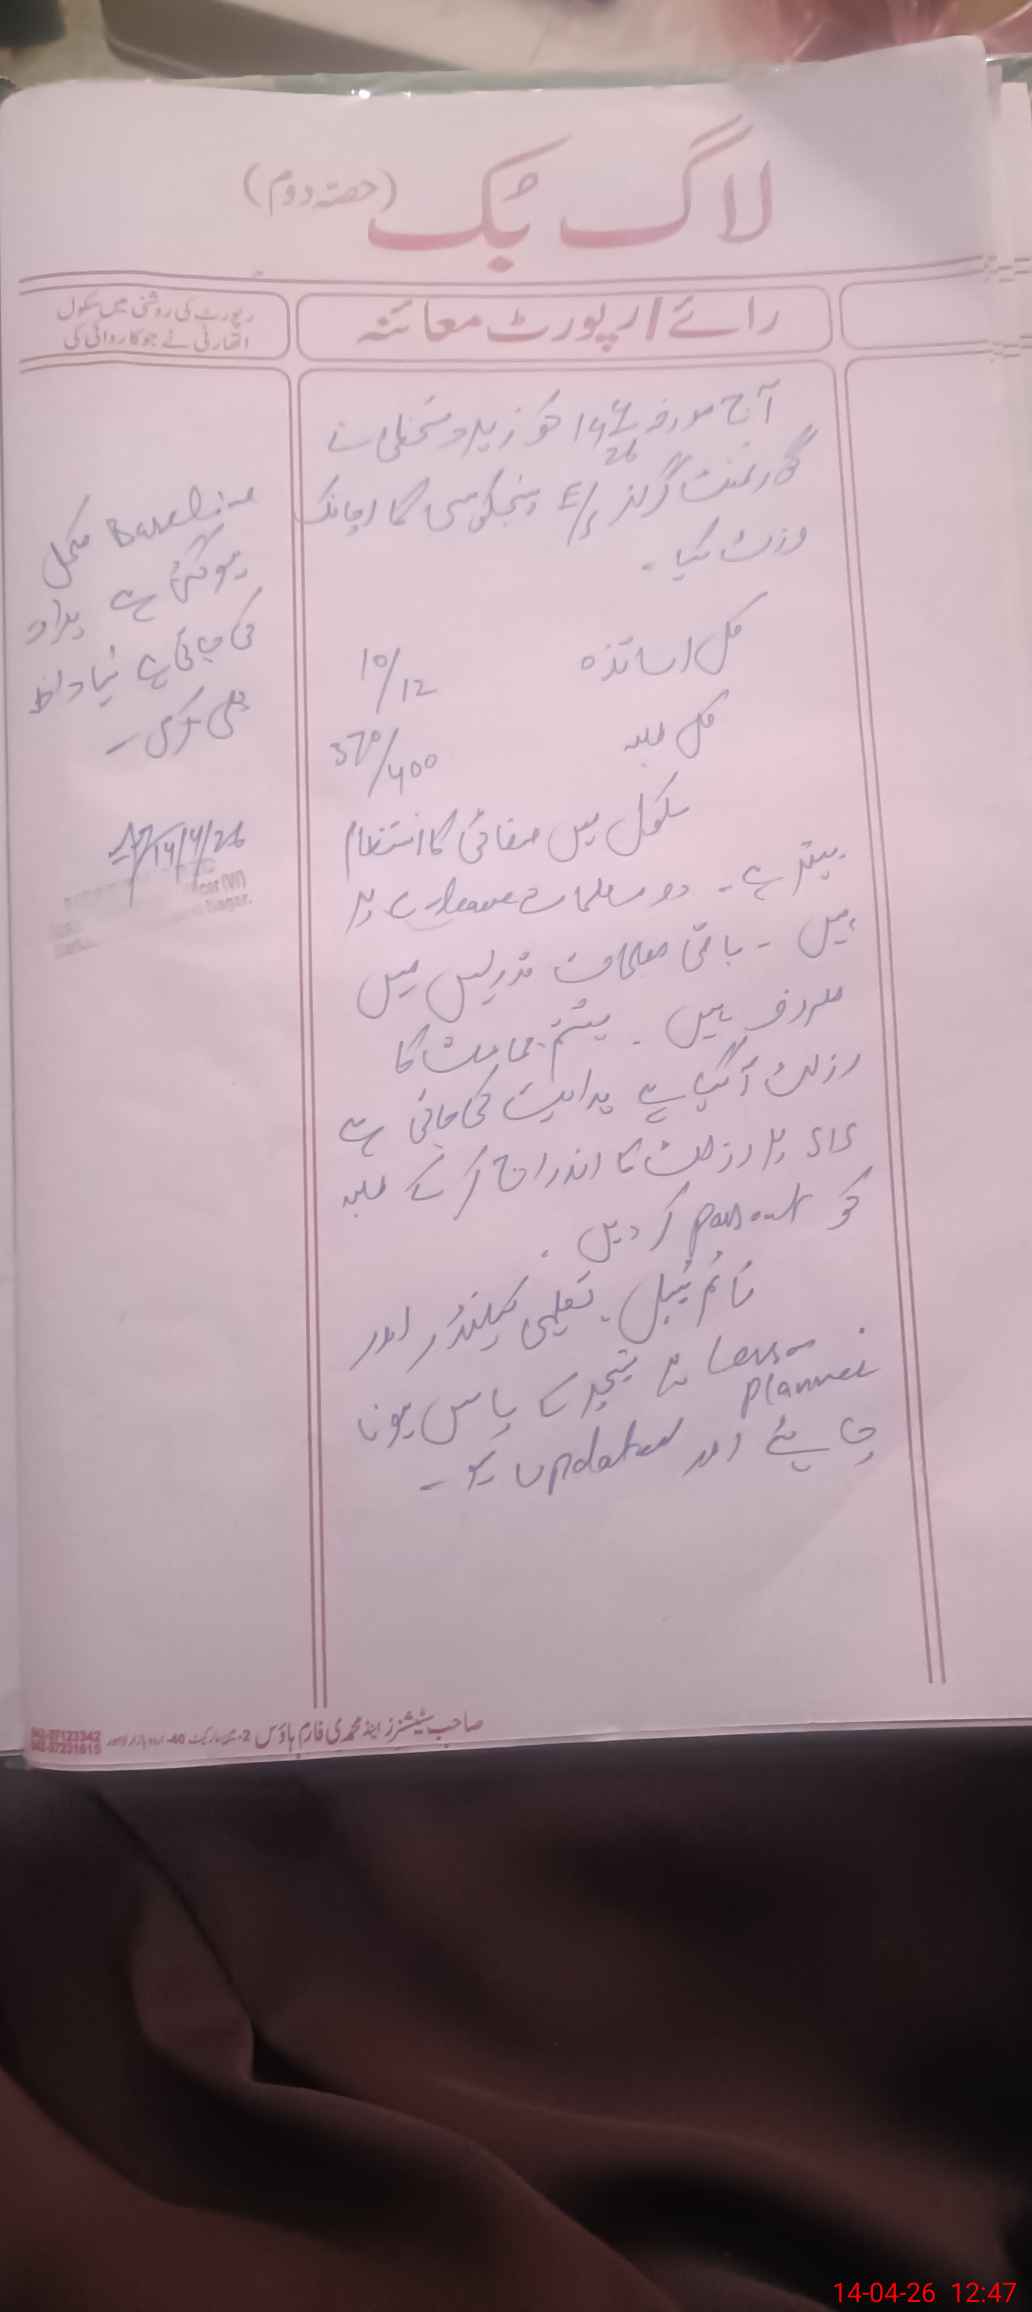 لاگ بُک (حصّہ دوم)
رائے / رپورٹ معائنہ
رپورٹ کی روشنی میں سکول
اتھارٹی نے جو کاروائی کی
آج مورخہ 14/4/26 کو زیر دستخطی نے
گورنمنٹ گرلز E/S کا اچانک
وزٹ کیا۔
کل اساتذہ 10/12
کل طلبہ 370/400
سکول میں صفائی کا انتظام
بہتر ہے۔ دو معلمات leave پر
ہیں۔ باقی معلمات تدریس میں
مصروف ہیں۔ ہشتم جماعت کا
رزلٹ آ گیا ہے ہدایت کی جاتی ہے
SIS پر رزلٹ کا اندراج کر کے طلبہ
کو pass out کر دیں۔
ٹائم ٹیبل، تعلیمی کیلنڈر اور
Lesson planner ہر ٹیچر کے پاس ہونا
چاہیئے اور updated ہو۔
Baseline مکمل
ہو گئی ہے ہدایت
کی جاتی ہے نیا داخلہ
بھی کریں۔
14/4/26
صاحب سٹیشنرز اینڈ محمدی فارم ہاؤس 2- 40- اردو بازار لاہور
042-37123342
042-37231615
14-04-26 12:47